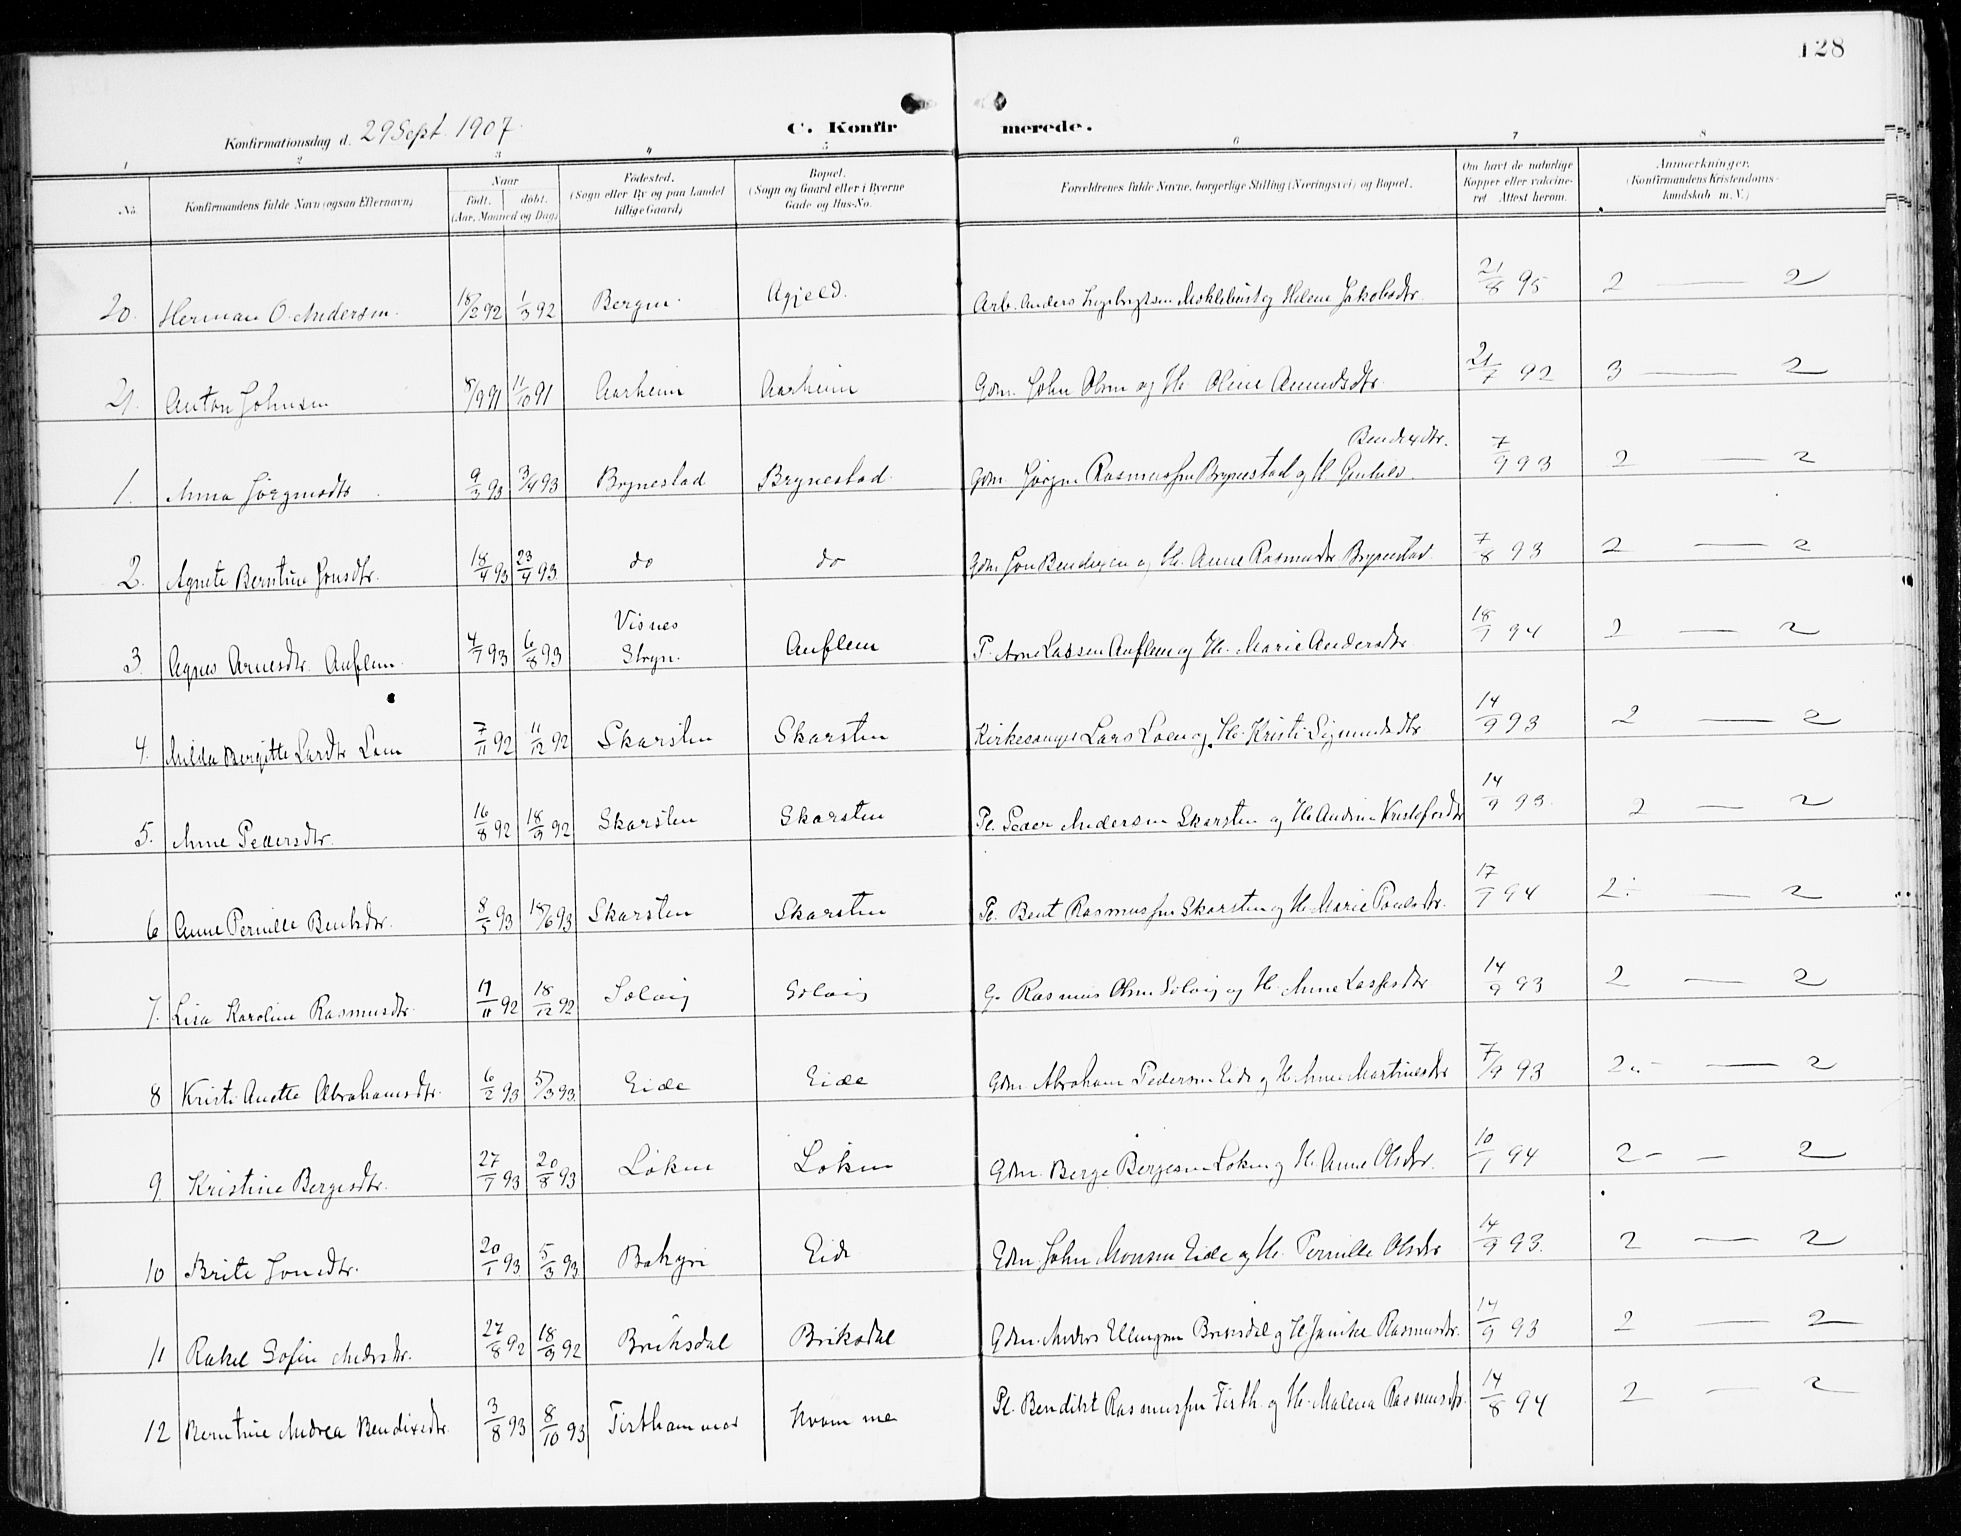 128
Konfirmationsdag d. 29 Sept 1907.
C. Konfirmerede.
1 2 3 4 5 6 7 8
No. Konfirmandens fulde Navn (ogsaa Efternavn) Naar født. døbt. (Aar, Maaned og Dag) Fødested. (Sogn eller By og paa Landet tillige Gaard) Bopæl. (Sogn og Gaard eller i Byerne Gade og Hus-No. Forældrenes fulde Navne, borgerlige Stilling (Næringsvei) og Bopæl. Om havt de naturlige Kopper eller vaccineret Attest herom. Anmærkninger. (Konfirmandens Kristendomskundskab m. V.)
20. Herman O. Andersen. 18/2 92 1/3 92 Bergen. Agjeld. Arb. Anders Ingebrigtsen Moklebust og Helene Jakobsdtr. 21/8 95 2 — 2
21. Anton Johnsen 8/9 91 11/10 91 Aarheim Aarheim Gdm. John Olsen og H. Oline Amundsdtr. 21/7 92 3 — 2
1. Anna Jørgensdtr. 9/3 93 3/4 93 Brynestad Brynestad. Gdm. Jørgen Rasmussen Brynestad og H. Bendixdtr. 7/9 93 2 — 2
2. Agnete Berntine Jonsdtr. 18/4 93 23/4 93 do do Gdm Jon Bendixen og H. Anne Rasmusdtr Brynestad 7/8 93 2 — 2
3. Agnes Arnesdtr. Auflem 4/7 93 6/8 93 Visnes Stryn. Auflem P. Arne Lassen Auflem og H. Marie Andersdtr 18/7 94 2 — 2
4. Milda Bergitte Larsdtr Loen 7/11 92 11/12 92 Skarsten Skarsten Kirkesanger Lars Loen og H. Kristi Sigmundsdtr 14/9 93 2 — 2
5. Anne Pedersdtr. 16/8 92 18/9 92 Skarsten Skarsten Pl. Peder Andersen Skarsten og H. Andrine Kristofersdtr 14/9 93. 2 — 2
6 Anne Pernille Bentsdtr. 8/5 93 18/6 93 Skarsten Skarsten Pl. Bent Rasmussen Skarsten og H. Marie Paulsdtr. 17/7 94 2 — 2
7. Lisa Karoline Rasmusdtr. 17/11 92 18/12 92 Solvig Solvig G. Rasmus Olsen Solvig og H. Anne Lassesdtr 14/9 93 2 — 2
8 Kristi Anette Abrahamsdtr. 6/2 93 5/3 93 Eide Eide Gdm. Abraham Pedersen Eide og H. Anne Martinusdtr 7/9 93 2 — 2
9 Kristine Bergesdtr. 27/7 93 20/8 93 Løken Løken Gdm. Berge Bergesen Løken og H. Anne Olsdtr. 10/7 94 2 — 2
10 Brite Jonsdtr. 20/1 93 5/3 93 Bakgri Eide Gdm. John Monsen Eide og H. Pernille Olsdtr 14/9 93. 2 — 2
11 Rakel Sofie Andersdtr. 27/8 92 18/9 92 Briksdal Briksdal Gdm. Anders Ellingsen Briksdal og H. Jenike Rasmusdtr. 14/9 93 2 — 2
12 Berntine Andrea Bendixsdtr. 3/8 93 8/10 93 Tisthammar Kvamme Pl. Bendikt Rasmussen Tisth. og H. Malena Rasmusdtr. 14/8 94 2 — 2